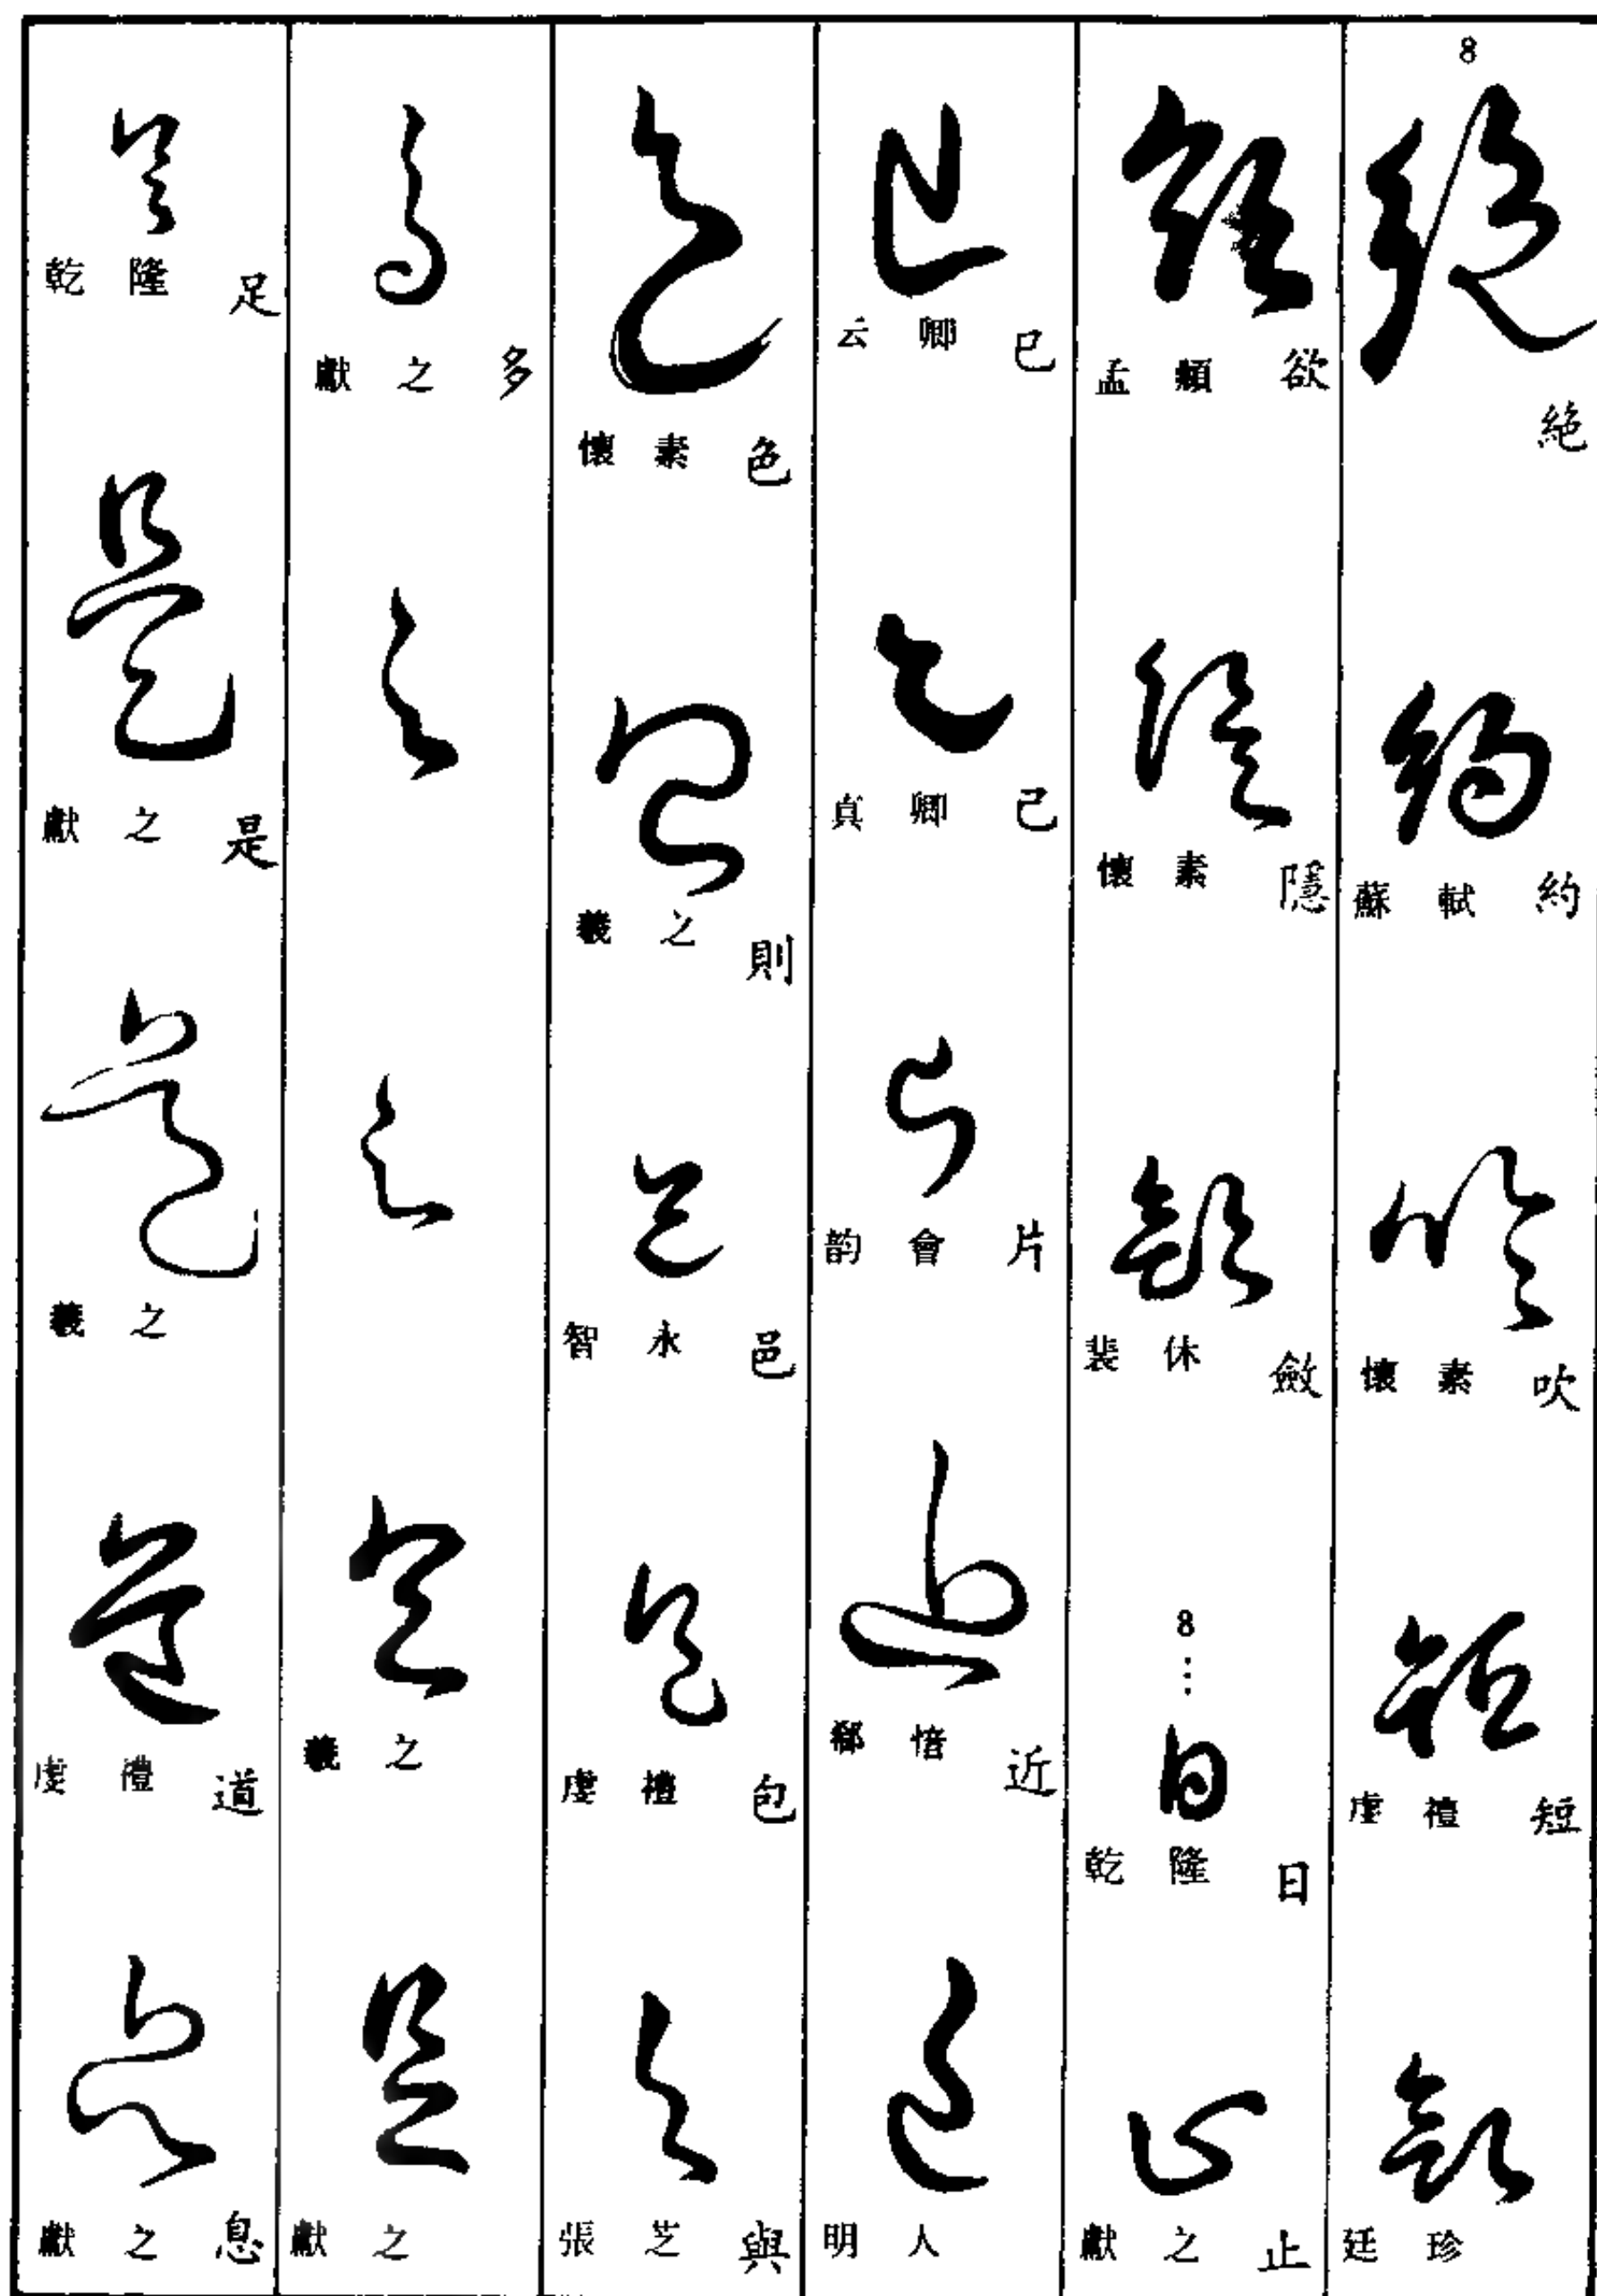 8
絶
蘇軾 約
懷素 吹
虔禮 短
廷珍
孟頫 欲
懷素 隱
裴休 斂
8
乾隆 日
獻之 止
云卿 巳
真卿 己
韵會 片
郗愔 近
明人
懷素 色
羲之 則
智永 邑
虔禮 包
張芝 與
獻之 多
羲之
獻之
乾隆 足
獻之 是
羲之
虔禮 道
獻之 息